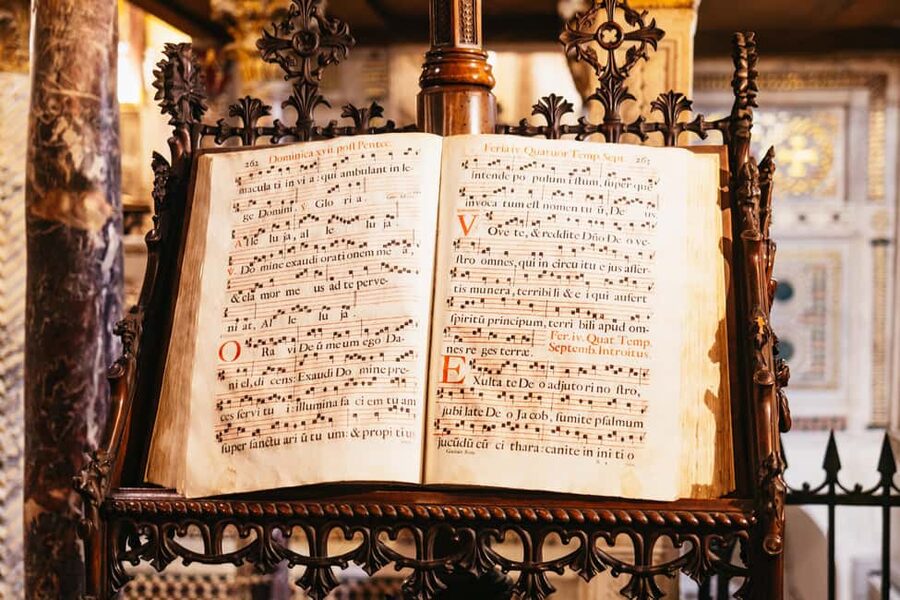 262 Dominica xvij. post Pentec.
macula ti in vi a: qui ambulant in le-
ge Domini. ℣. Glo ri a.
A lle lu ja, al le lu ja.
℣. Do mine exaudi orati onem me a,
& cla mor me us ad te perve-
ni at, Al le lu ja.
O Ra vi De ū me um ego Da-
ni el, di cens: Exaudi Do mine pre-
ces servi tu i: illumina fa ci em tu am
super sanctu ari ū tu um: & propi tius
Feria iv. Quatuor Temp. Sept. 263
intende po pulum istum, super quē
invoca tum est nomen tu ū, De us
V Ove te, & reddite Dño De o ve-
stro omnes, qui in circu itu e jus affer-
tis munera, terribi li & e i qui aufert
spiritū principum, terri bili apud om-
nes re ges terræ. Fer. iv. Quat. Temp.
Septemb. Introitus.
E Xulta te De o adjuto ri no stro,
jubi late De o Ja cob, sumite psalmum
jucūdū cū ci thara: canite in ini ti o